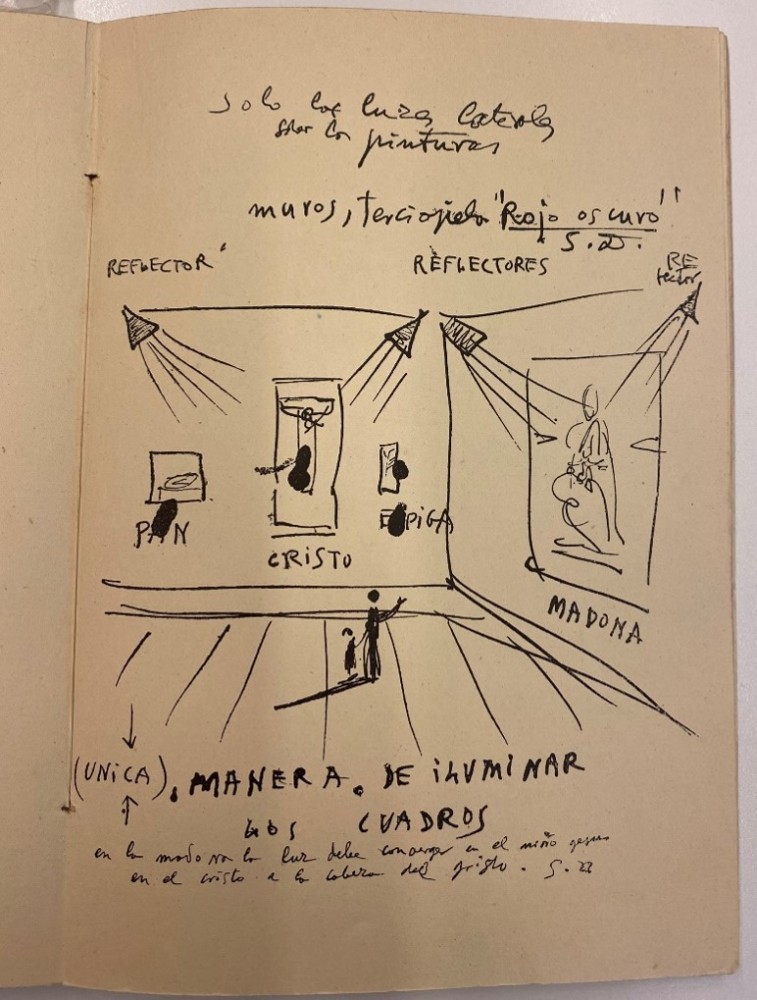 solo las luces laterales
sobre las pinturas
muros, terciopelo "Rojo oscuro"
S.D.
REFLECTOR
REFLECTORES
RE
flector
PAN
CRISTO
ESPIGA
MADONA
(UNICA). MANERA. DE ILUMINAR
LOS CUADROS
en la madona la luz debe converger en el niño Jesus
en el cristo a la cabeza del Cristo. S.D.